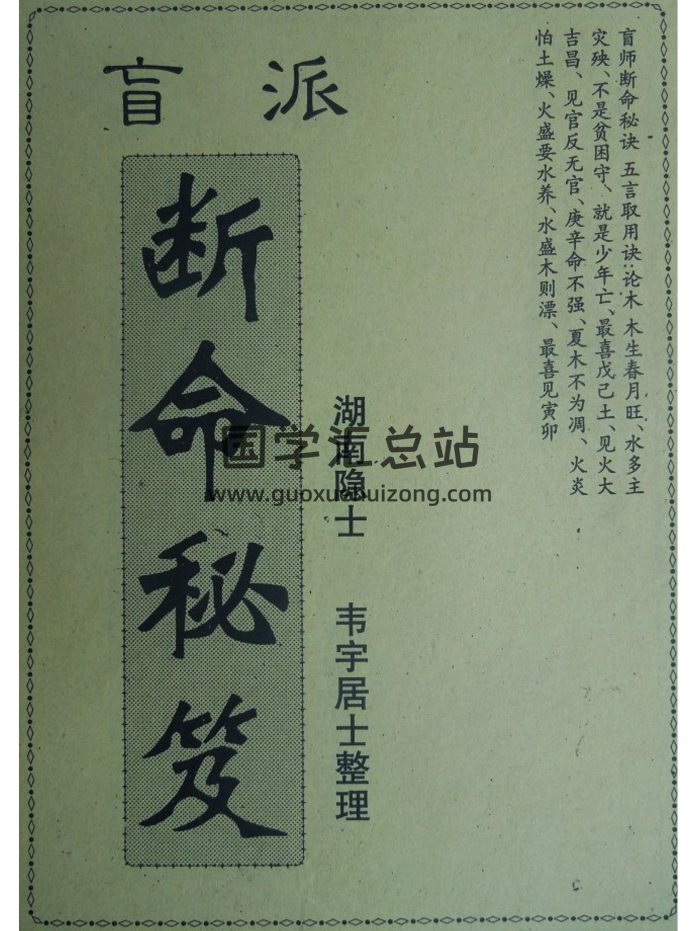 盲派
断命秘笈
盲师断命秘诀 五言取用诀:论木 木生春月旺、水多主
灾殃、不是贫困守、就是少年亡、最喜戊己土、见火大
吉昌、见官反无官、庚辛命不强、夏木不为凋、火炎
怕土燥、火盛要水养、水盛木则漂、最喜见寅卯
湖南隐士 韦宇居士整理
国学汇总站
www.guoxuehuizong.com